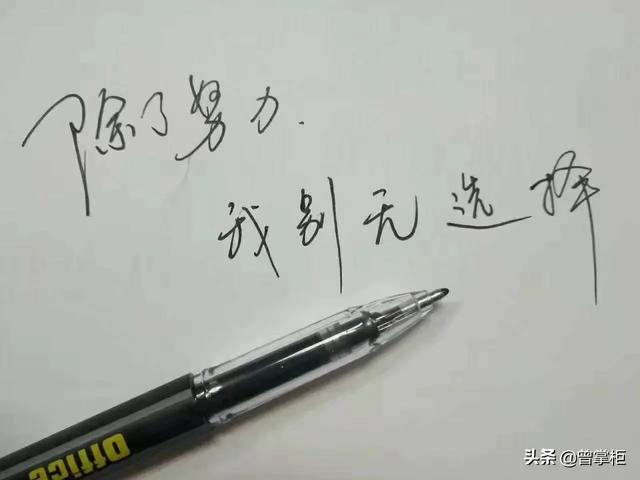 除了努力.
我别无选择
Office
头条 @曾掌柜